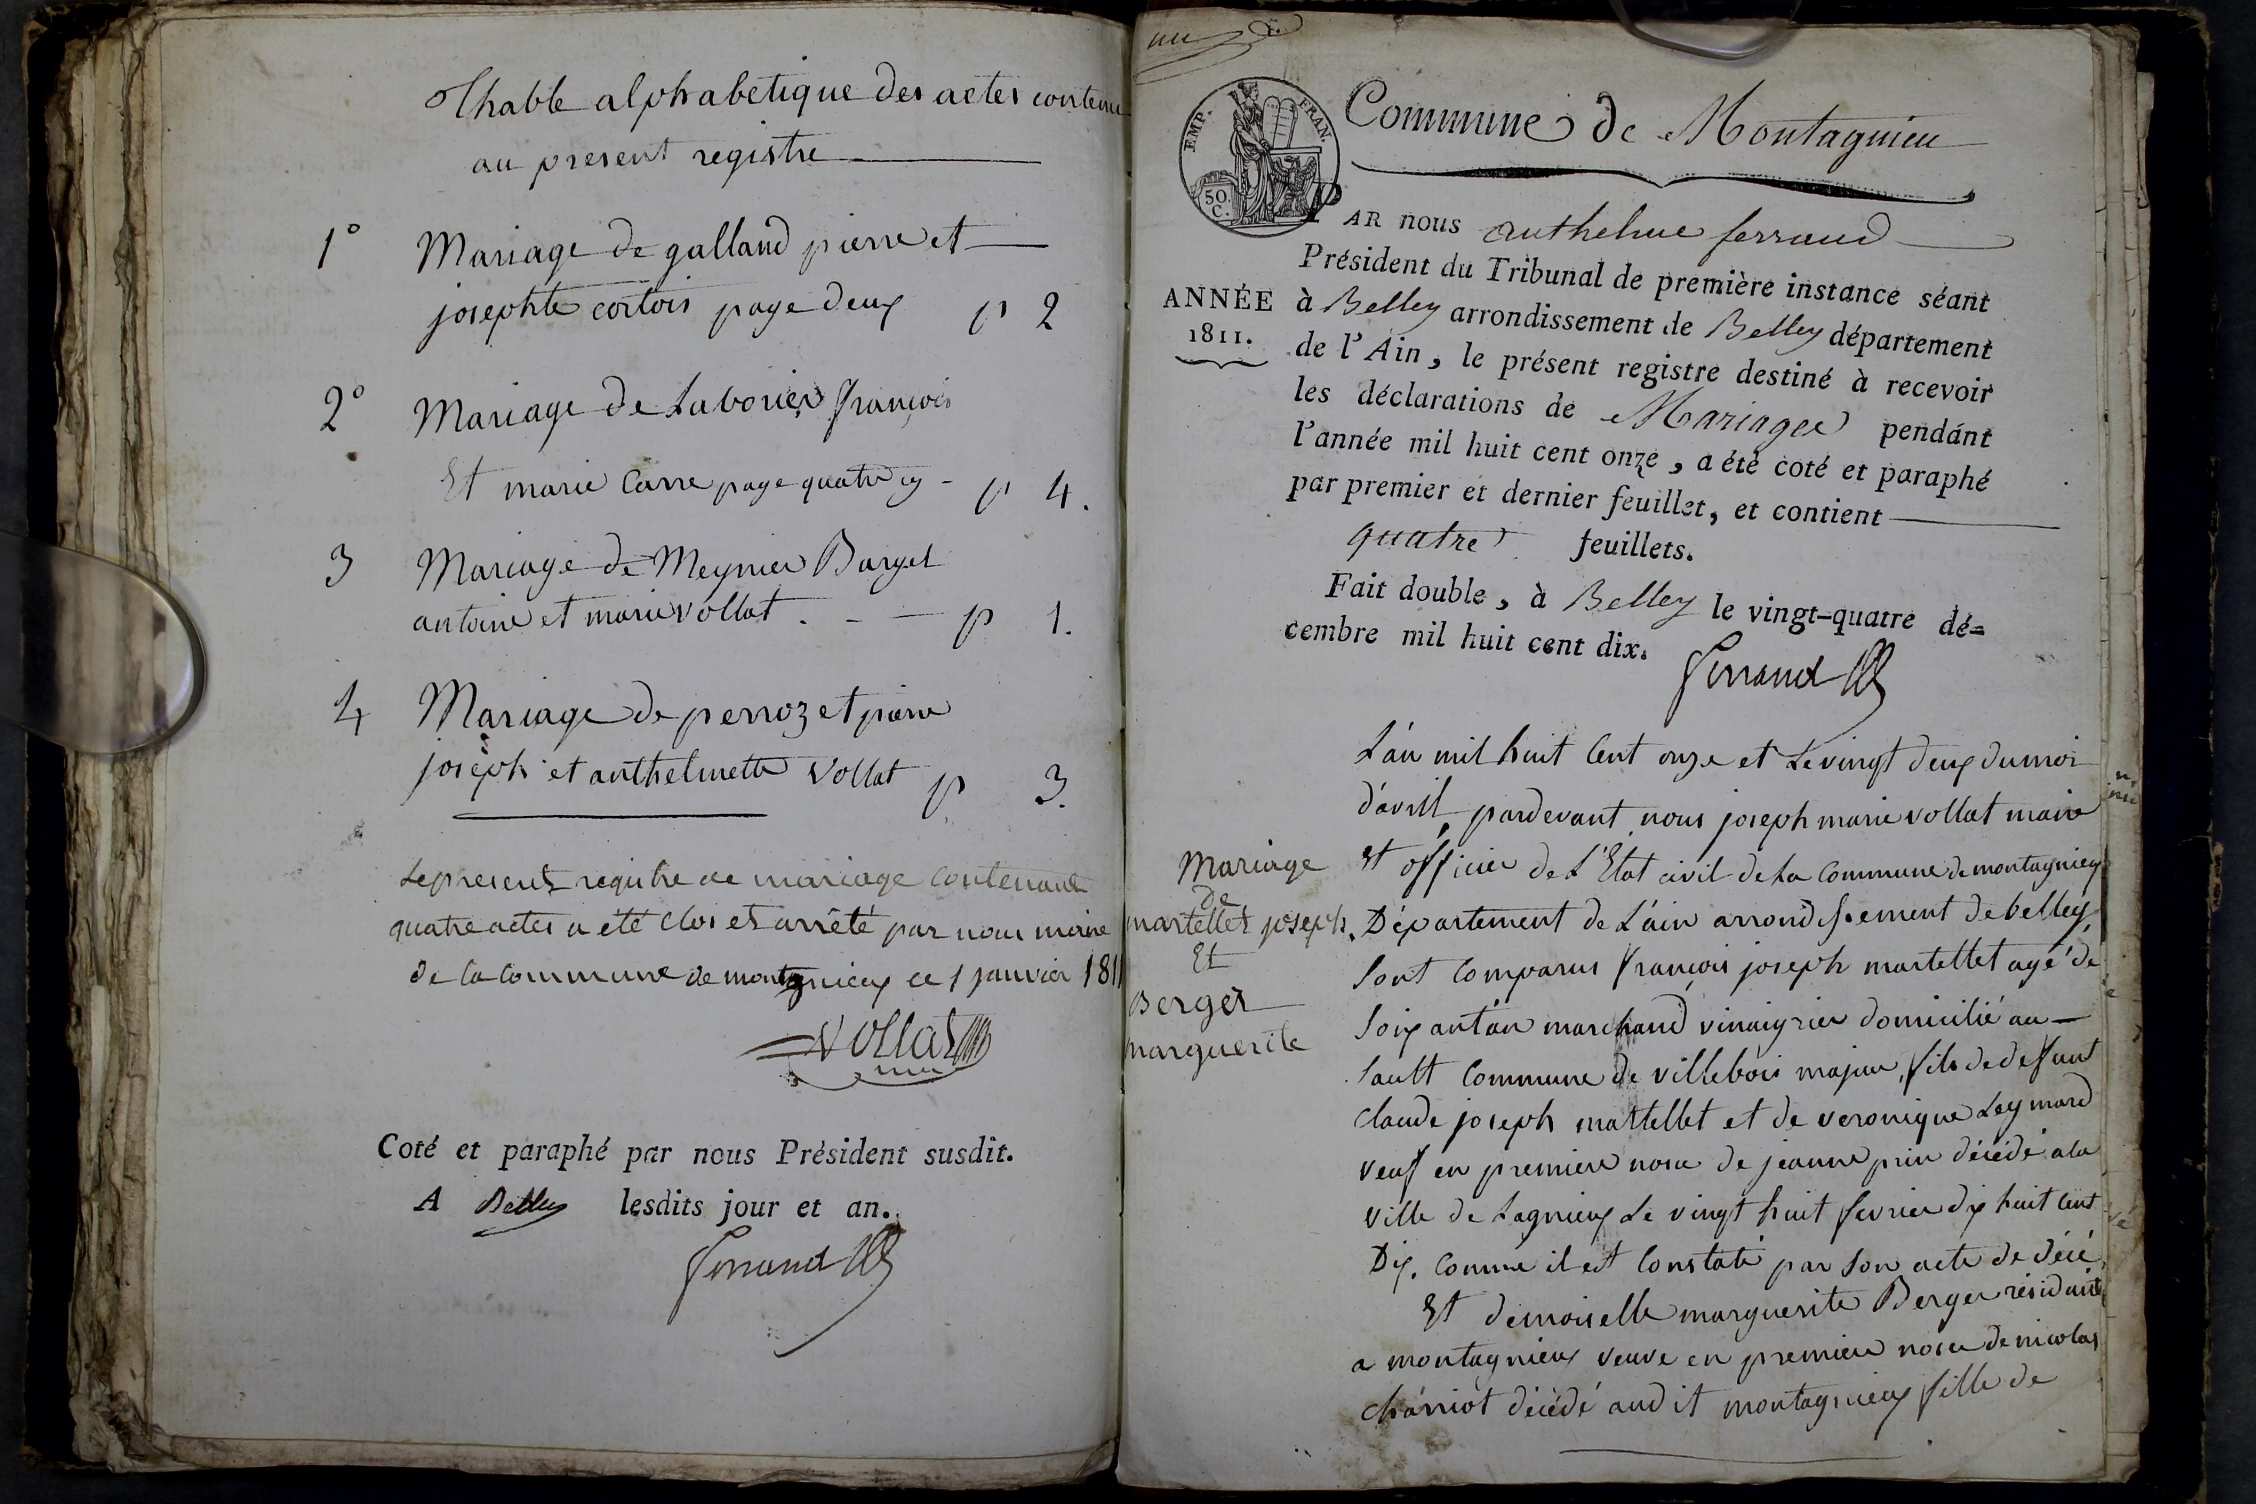 Thable alphabetique des actes contenu
au present registre
1° Mariage de galland pierre et
josephte cortois page deux p 2
2° Mariage de Laborier françois
Et marie Carre page quatre cy - p 4.
3 Mariage de Meynier Barget
antoine et marie vollat . - - p 1.
4 Mariage de perrozet pierre
joseph et anthelmette vollat p 3.
Le present registre de mariage contenant
quatre actes a été clos et arrêté par nous maire
de la commune de montagnieux ce 1 janvier 1811
vollat
Coté et paraphé par nous Président susdit.
A Belley lesdits jour et an.
Ferrand
EMP. FRAN.
50. C.
Commune de Montagnieu
PAR nous anthelme ferrand
Président du Tribunal de première instance séant
ANNÉE
1811.
à Belley arrondissement de Belley département
de l'Ain, le présent registre destiné à recevoir
les déclarations de Mariages pendant
l'année mil huit cent onze, a été coté et paraphé
par premier et dernier feuillet, et contient
quatre feuillets.
Fait double, à Belley le vingt-quatre dé=
cembre mil huit cent dix.
Ferrand
Mariage
de
martellet joseph
Et
Berger
marguerite
L'án mil huit Cent onze et Le vingt deux du moi
d'avril pardevant nous joseph marie vollat maire
Et officier de L'Etat civil de La Commune de montagnieux
Département de L'áin arrondissement de belley
Sont Comparus françois joseph martellet agé de
Soixant'án marchand vinaigrier domicilié au
Sault Commune de villebois majeur, fils de defunt
claude joseph martellet et de veronique Leymard
veuf en premiere noce de jeanne prin décédé a la
ville de Lagnieux Le vingt huit fevrier dix huit Cent
Dix. Comme il est Constaté par Son acte de décé
Et demoiselle marguerite Berger résidante
a montagnieux veuve en premiere noce de nicolas
chárriot décédé audit montagnieux fille de